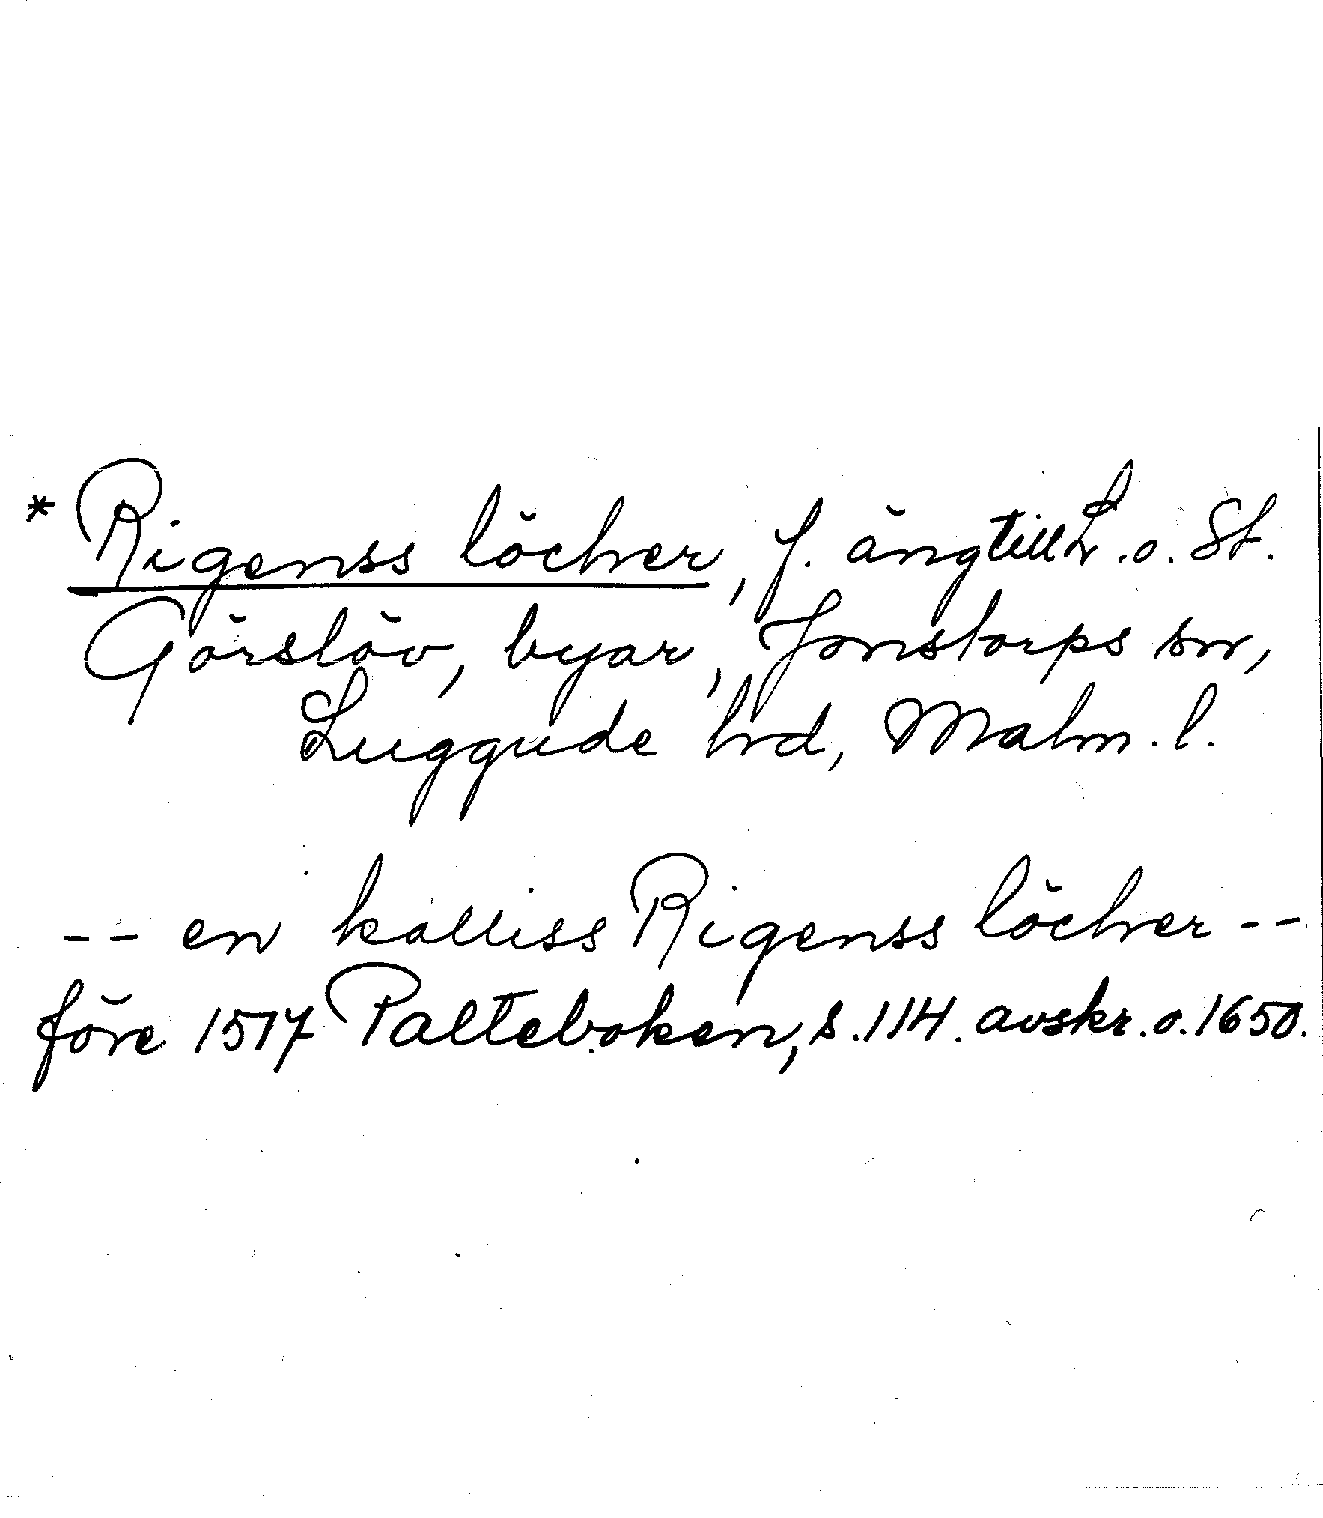 * Rigenss löcher, f. äng till L. o. St.
Görslöv, byar, Jonstorps sn,
Luggude hd, Malm. l.
-- en kalliss Rigenss löcher --
före 1517 Palteboken, s. 114. avskr. o. 1650.